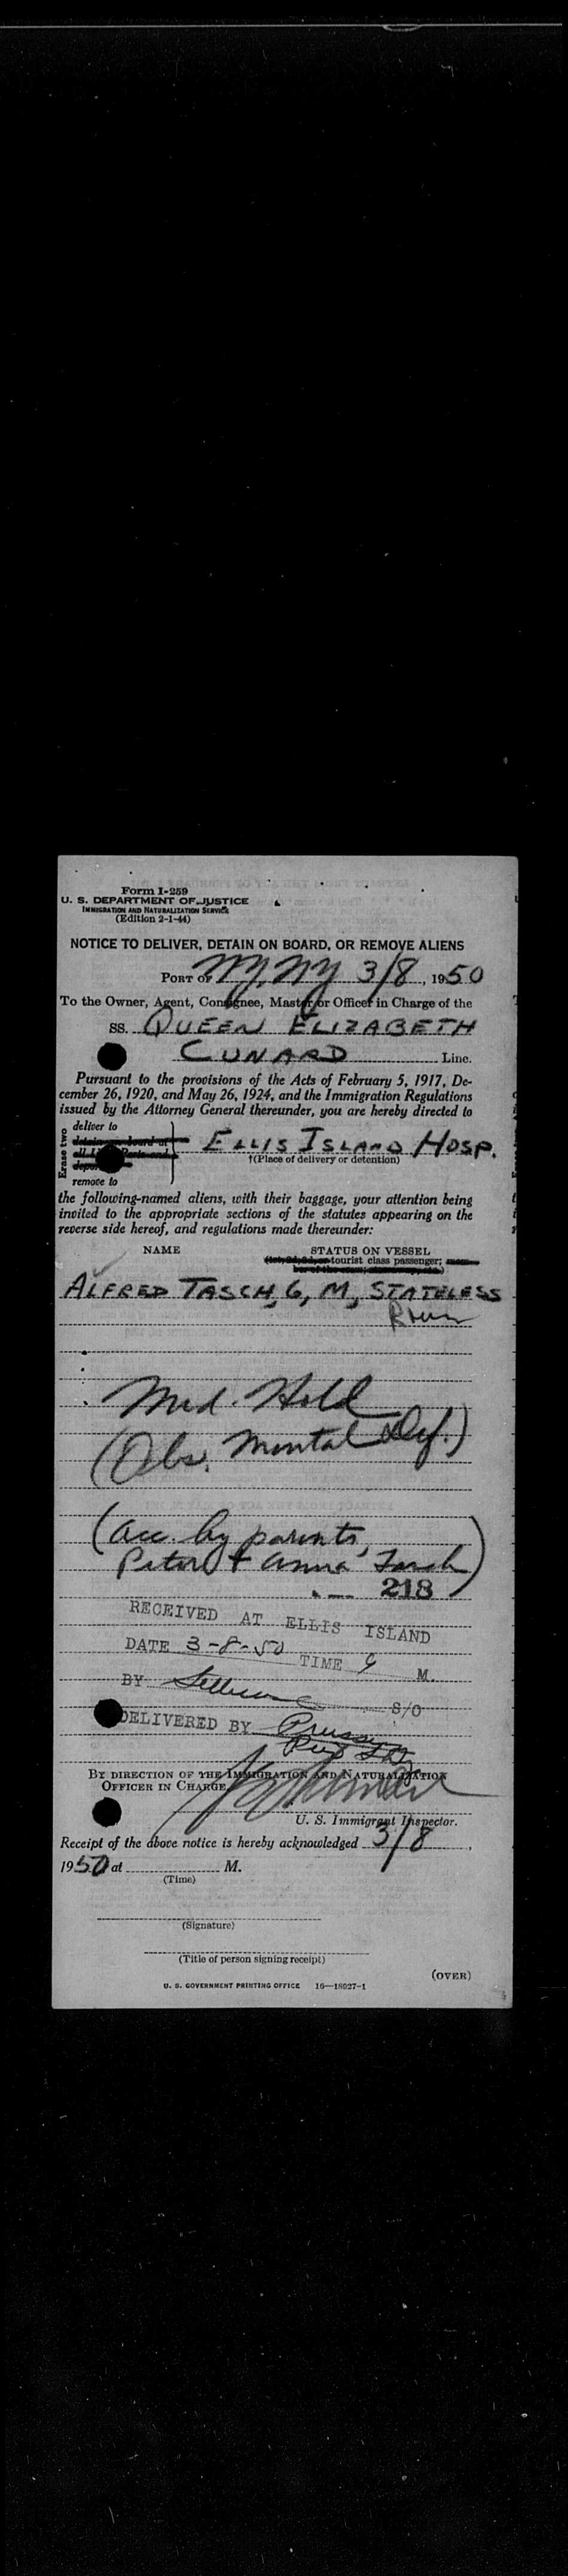 Form I-259
U. S. DEPARTMENT OF JUSTICE
IMMIGRATION AND NATURALIZATION SERVICE
(Edition 2-1-44)
NOTICE TO DELIVER, DETAIN ON BOARD, OR REMOVE ALIENS
PORT OF NY, NY 3/8, 1950
To the Owner, Agent, Consignee, Master or Officer in Charge of the
SS. QUEEN ELIZABETH
CUNARD Line.
Pursuant to the provisions of the Acts of February 5, 1917, De-
cember 26, 1920, and May 26, 1924, and the Immigration Regulations
issued by the Attorney General thereunder, you are hereby directed to
Erase two
deliver to
detain on board at
ELLIS ISLAND HOSP.
†(Place of delivery or detention)
remove to
the following-named aliens, with their baggage, your attention being
invited to the appropriate sections of the statutes appearing on the
reverse side hereof, and regulations made thereunder:
NAME STATUS ON VESSEL
tourist class passenger;
ALFRED TASCH, 6, M, STATELESS
Med. Hold
(Obs. Mental Def.)
(acc. by parents,
Peter + Anna Tasch)
218
RECEIVED AT ELLIS ISLAND
DATE 3-8-50 TIME M.
BY S/O
DELIVERED BY
BY DIRECTION OF THE IMMIGRATION AND NATURALIZATION
OFFICER IN CHARGE,
U. S. Immigrant Inspector.
Receipt of the above notice is hereby acknowledged 3/8,
1950 at M.
(Time)
(Signature)
(Title of person signing receipt)
(OVER)
U. S. GOVERNMENT PRINTING OFFICE 16—18027-1